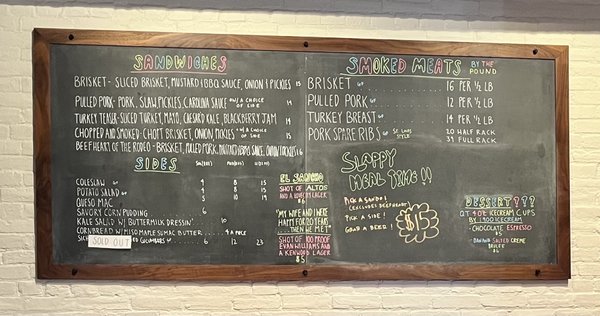 SANDWICHES
BRISKET - SLICED BRISKET, MUSTARD & BBQ SAUCE, ONION & PICKLES 15
PULLED PORK - PORK, SLAW, PICKLES, CAROLINA SAUCE w/ A CHOICE OF SIDE 14
TURKEY TEASER - SLICED TURKEY, MAYO, CHEESE, KALE, BLACKBERRY JAM 14
CHOPPED AND SMOKED - CHOPT BRISKET, ONION, PICKLES w/ A CHOICE OF SIDE 15
BEEF HEART OF THE RODEO - BRISKET, PULLED PORK, MUSTARD & BBQ SAUCE, ONION & PICKLES 16
SIDES
COLESLAW GF 4 8 15
POTATO SALAD GF 4 8 14
QUESO MAC 5 10 19
SAVORY CORN PUDDING 6
KALE SALAD w/ BUTTERMILK DRESSIN' 10
CORNBREAD w/ MISO MAPLE SUMAC BUTTER 4 A PIECE
SOLD OUT
CUCUMBERS GF 6 12 23
EL
SHOT OF ALTOS
AND A LAGER
$6
"MY WIFE AND I WERE
HAPPY FOR 20 YEARS
...THEN WE MET"
SHOT OF 100 PROOF
EVAN WILLIAMS AND
A KENWOOD LAGER
$5
SMOKED MEATS BY THE POUND
BRISKET GF 16 PER ½ LB
PULLED PORK GF 12 PER ½ LB
TURKEY BREAST GF 14 PER ½ LB
PORK SPARE RIBS GF ST. LOUIS STYLE 20 HALF RACK
39 FULL RACK
SLAPPY
MEAL TYME!!
PICK A SANDO!
(EXCLUDES BEEFHEART)
PICK A SIDE!
GRAB A BEER!
$15
DESSERT???
4oz ICECREAM CUPS
BY 1900 ICECREAM
-CHOCOLATE ESPRESSO
$5
-BANANA SALTED CREME
BRULEE